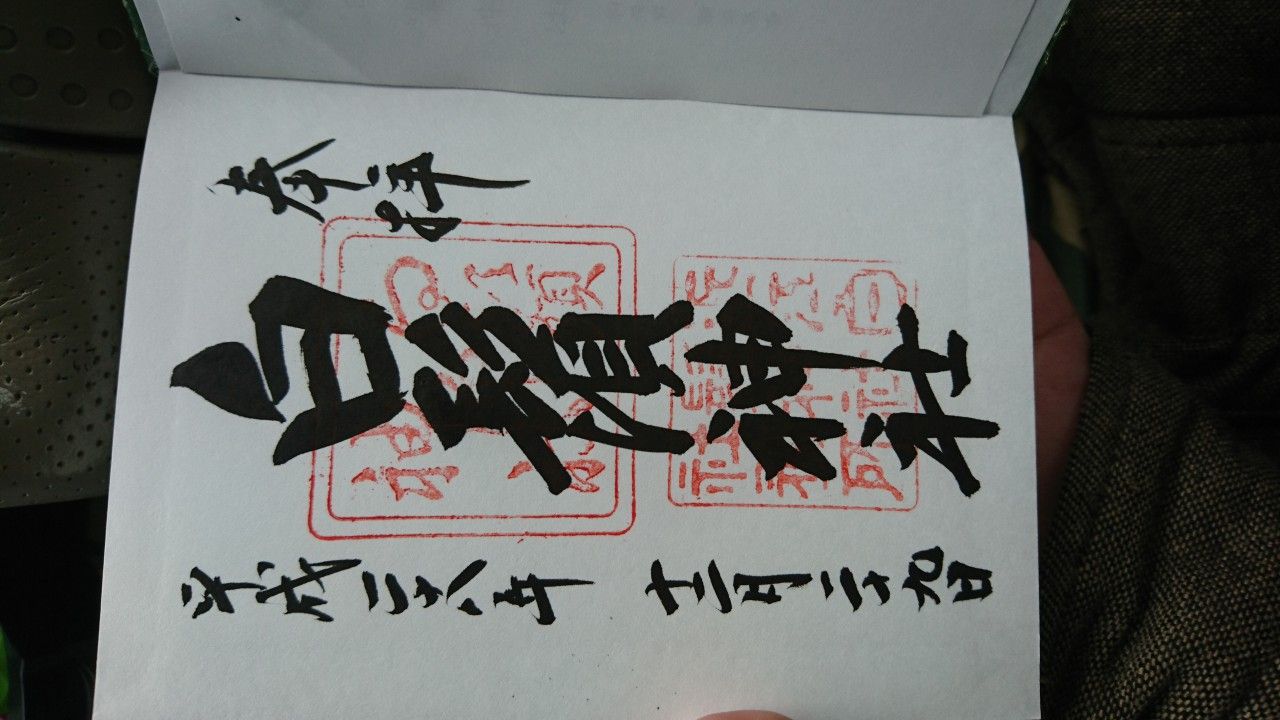 奉拝
白鬚神社
平成二十八年 十二月二十九日